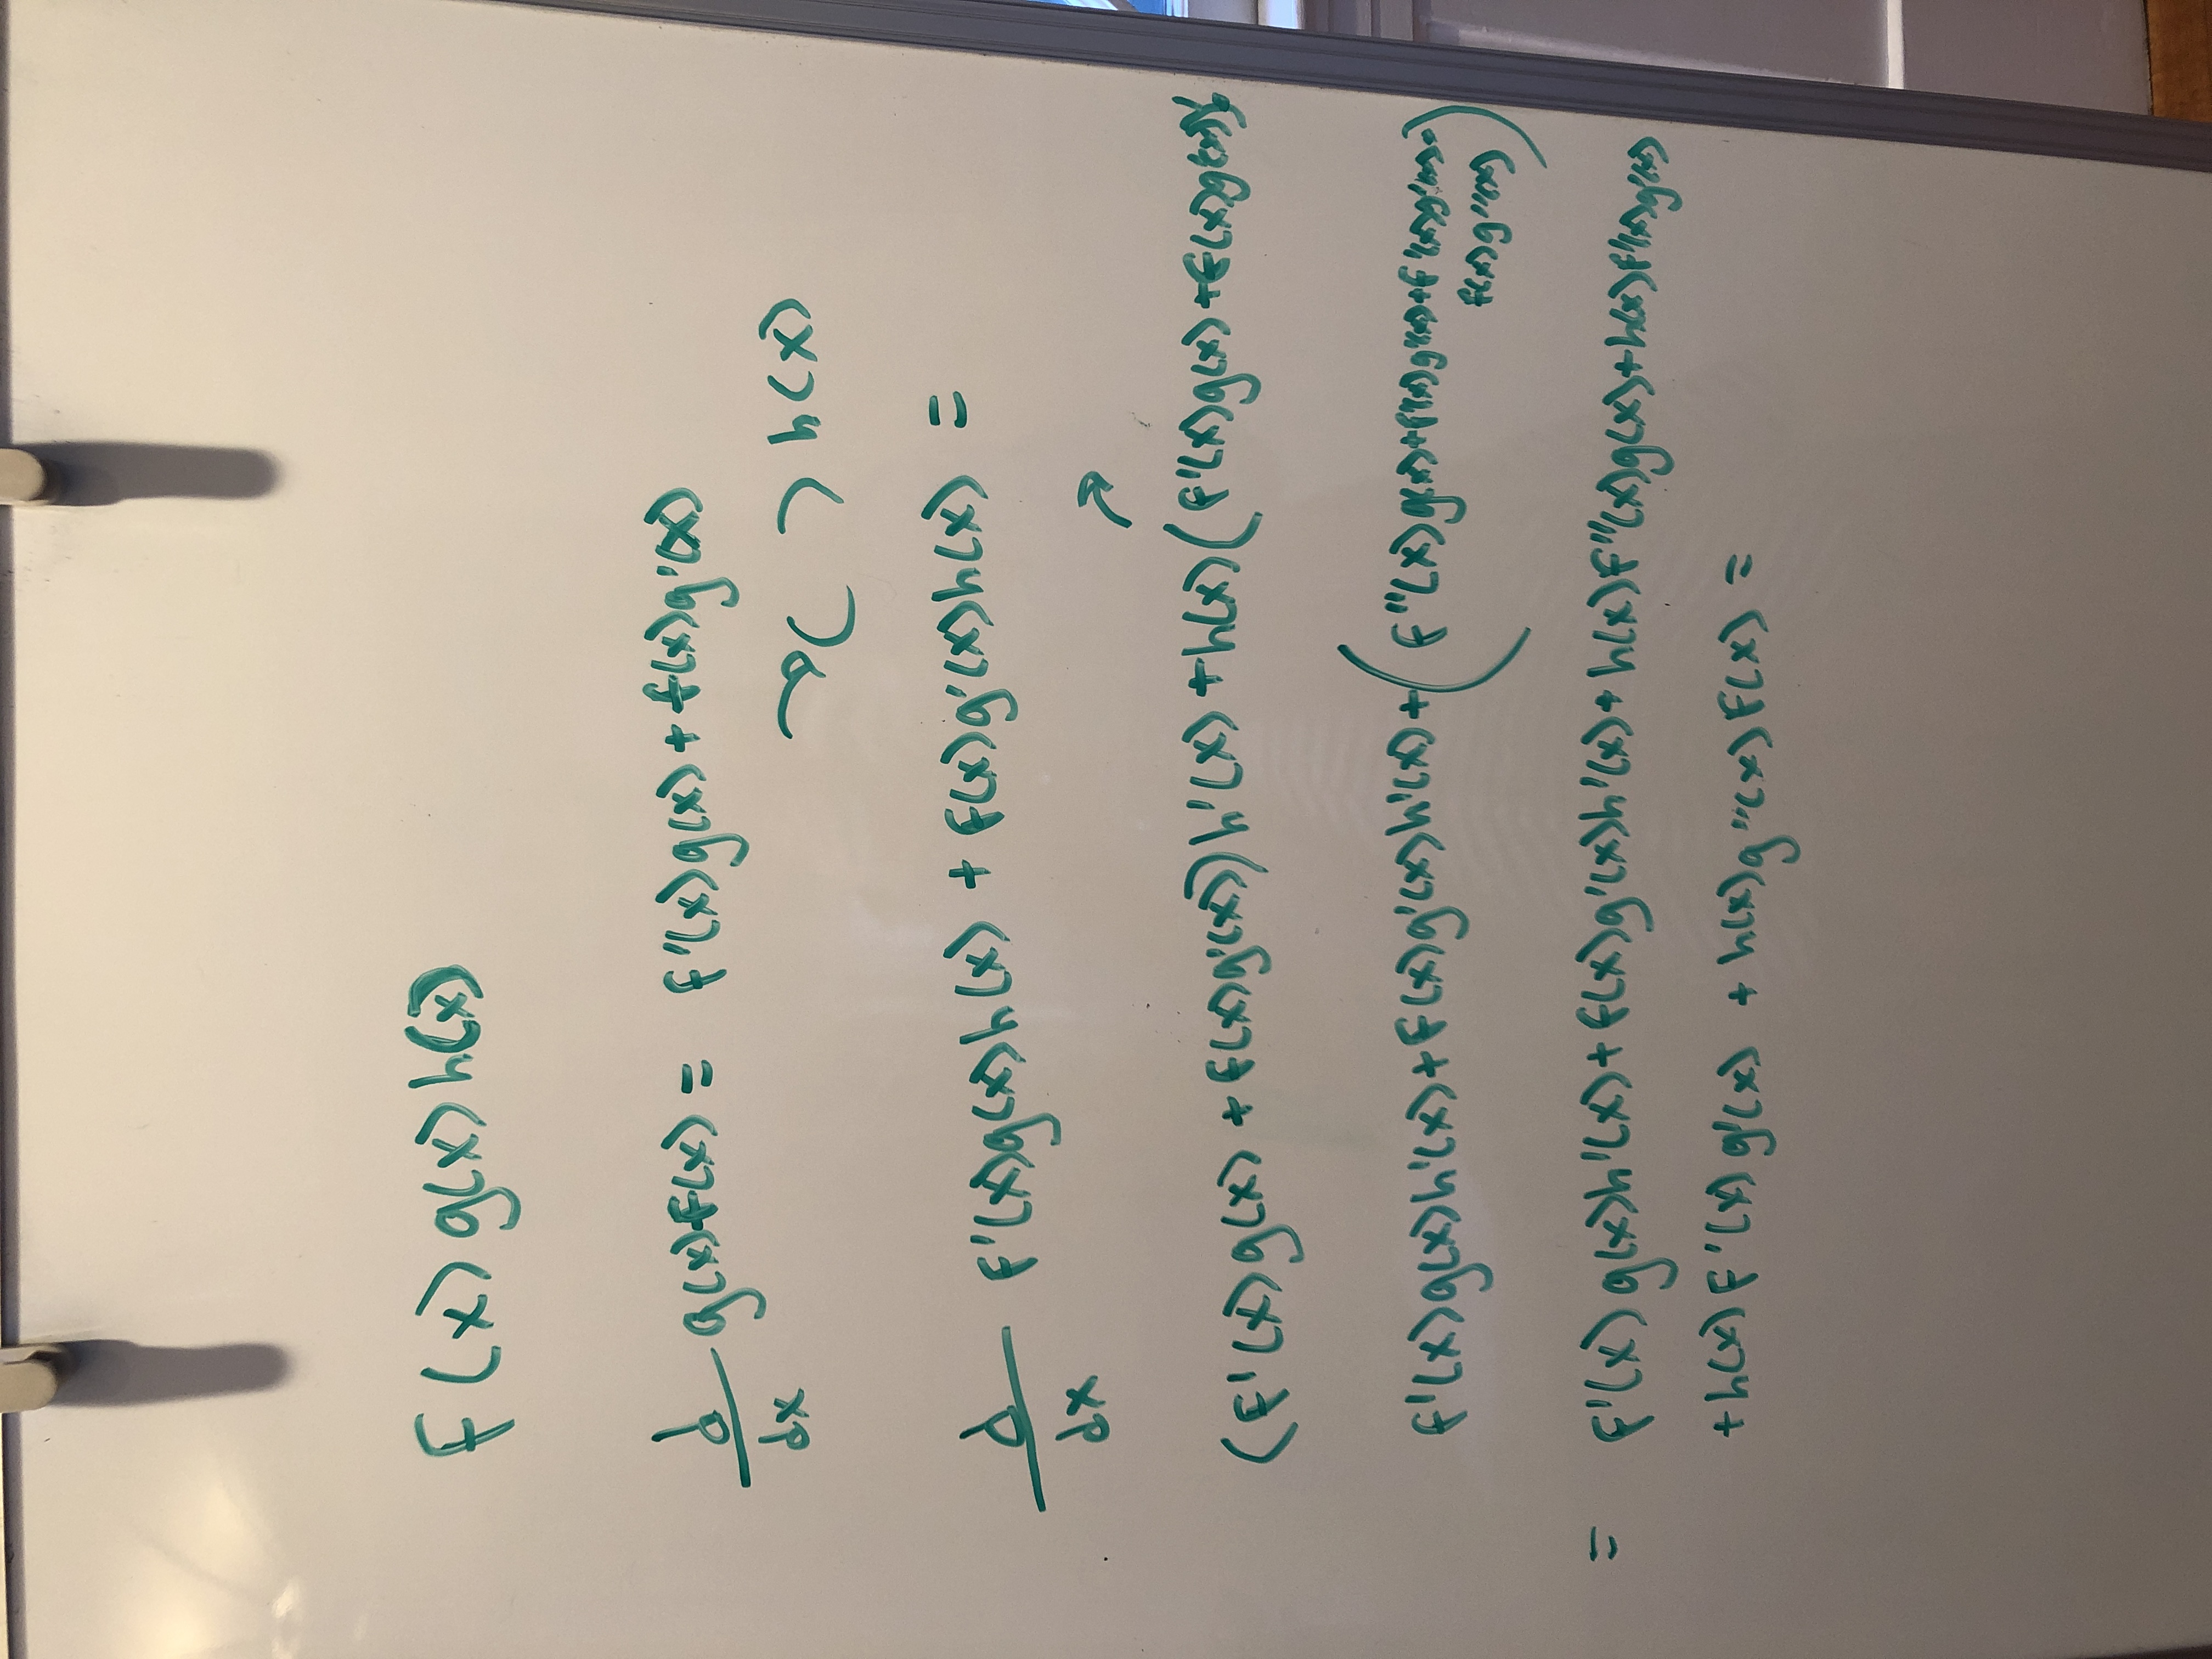 f(x) g(x) h(x)
d/dx g(x)f(x) = f'(x)g(x) + f(x)g'(x)
( ) h(x)
d/dx f'(x)g(x)h(x) + f(x)g'(x)h(x) =
(f'(x)g(x) + f(x)g'(x))h'(x) + h(x)(f'(x)g(x) + f(x)g'(x))'
f'(x)g(x)h'(x) + f(x)g'(x)h'(x) + (f''(x)g(x) + f'(x)g'(x) + f'(x)g'(x) +
f(x)g''(x))
= f'(x) g(x)h'(x) + f(x)g'(x)h'(x) + h(x)f''(x)g(x) + h(x)f'(x)g'(x)
+ h(x) f'(x) g'(x) + h(x)g''(x)f(x) =